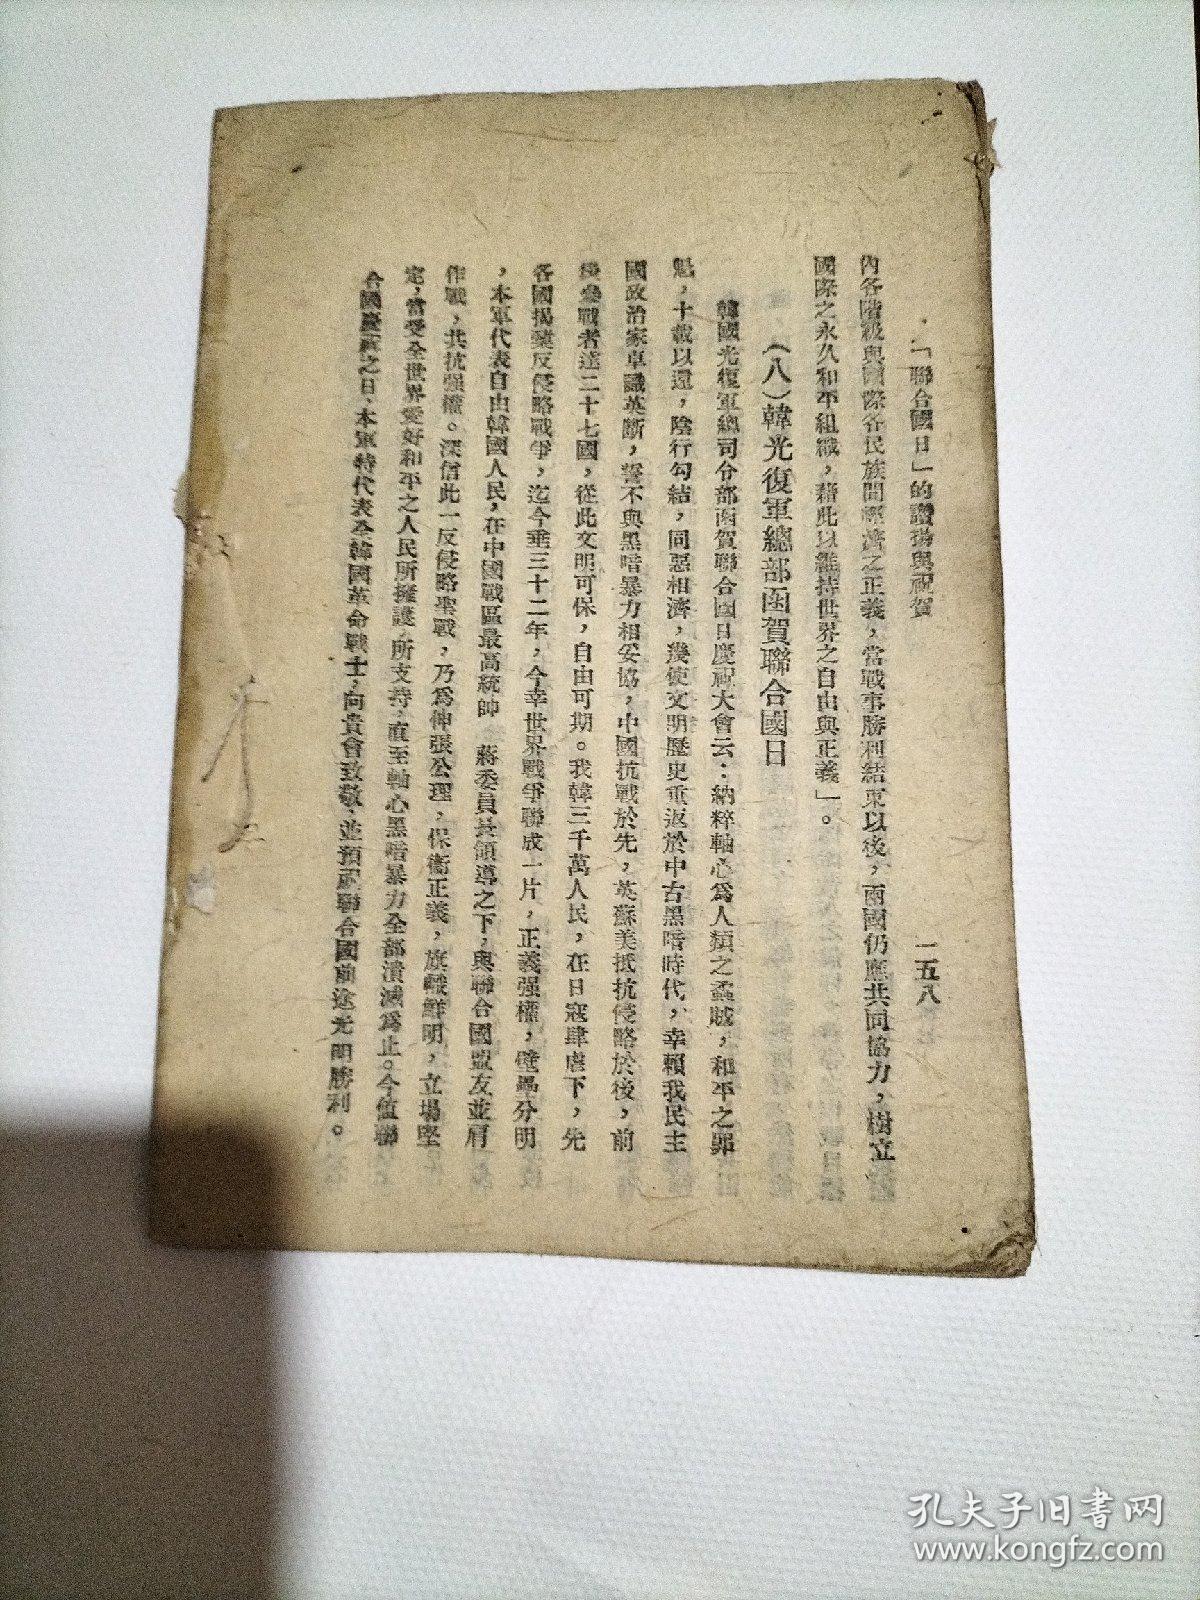 「聯合國日」的讚揚與祝賀
一五八
內各階級與國際各民族間經濟之正義，當戰事勝利結束以後，兩國仍應共同協力，樹立
國際之永久和平組織，藉此以維持世界之自由與正義」。
（八）韓光復軍總部函賀聯合國日
韓國光復軍總司令部函賀聯合國日慶祝大會云：納粹軸心爲人類之蟊賊，和平之罪
魁，十載以還，陰行勾結，同惡相濟，幾使文明歷史重返於中古黑暗時代，幸賴我民主
國政治家卓識英斷，誓不與黑暗暴力相妥協，中國抗戰於先，英蘇美抵抗侵略於後，前
後參戰者達二十七國，從此文明可保，自由可期。我韓三千萬人民，在日寇肆虐下，先
各國揭櫫反侵略戰爭，迄今垂三十二年，今幸世界戰爭聯成一片，正義强權，壁壘分明
，本軍代表自由韓國人民，在中國戰區最高統帥　蔣委員長領導之下，與聯合國盟友並肩
作戰，共抗强權。深信此一反侵略聖戰，乃爲伸張公理，保衞正義，旗幟鮮明，立場堅
定，當受全世界愛好和平之人民所擁護，所支持，直至軸心黑暗暴力全部潰滅爲止。今值聯
合國慶祝之日，本軍特代表全韓國革命戰士，向貴會致敬，並預祝聯合國前途光明勝利。
孔夫子旧书网
www.kongfz.com